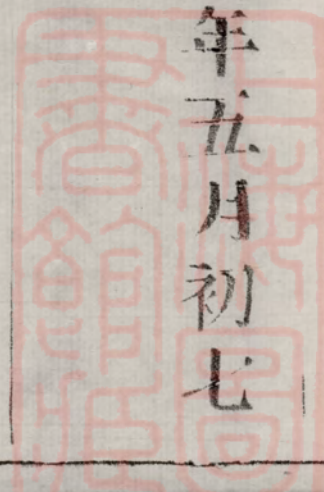 年五月初七